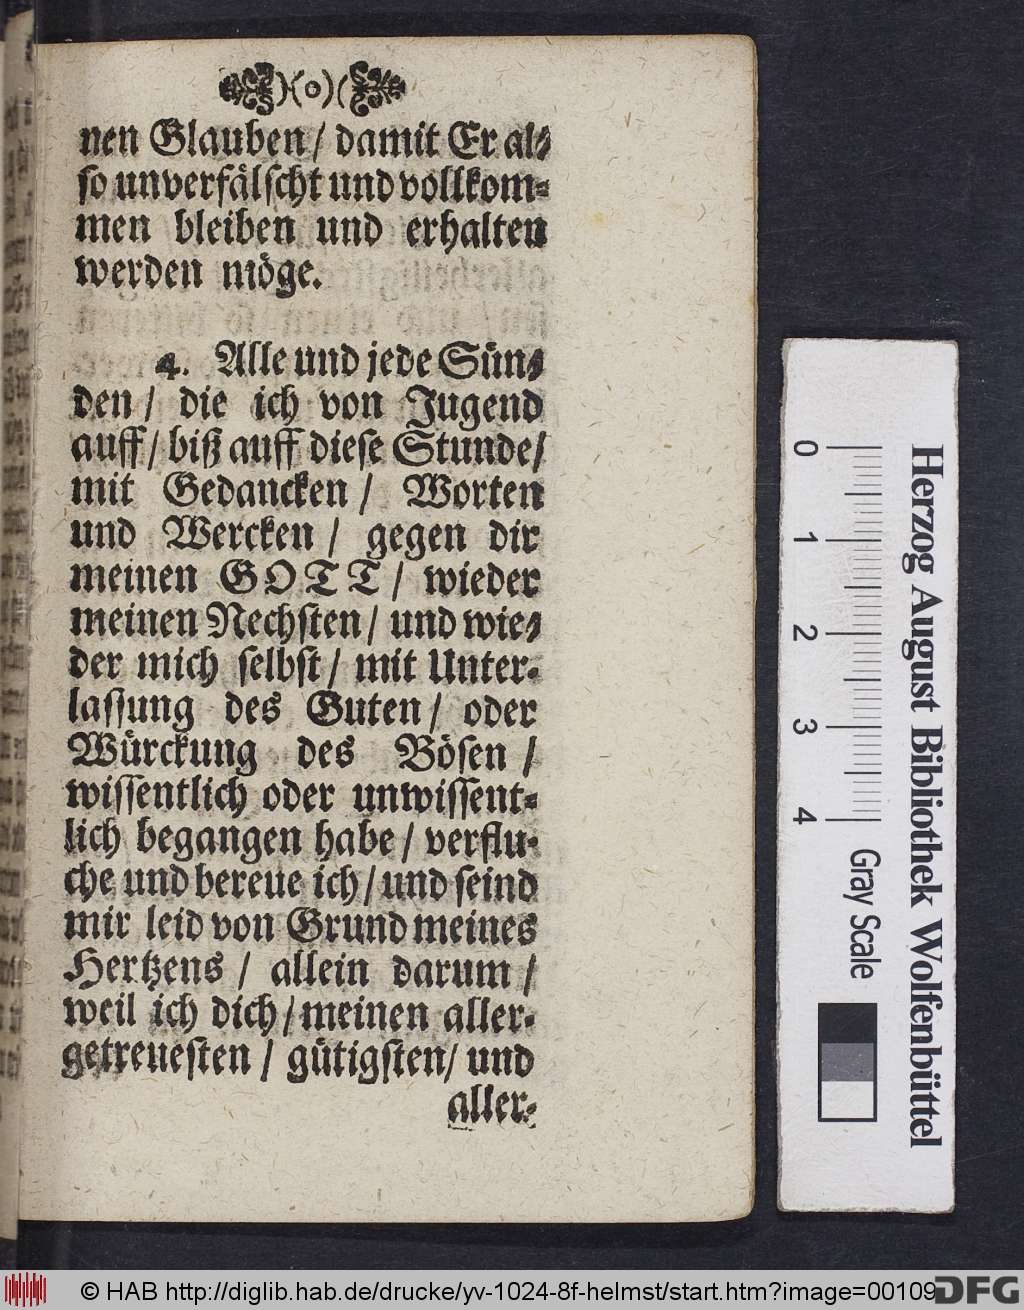 )(o)(
nen Glauben / damit Er al-
so unverfälscht und vollkom-
men bleiben und erhalten
werden möge.
4. Alle und jede Sün-
den / die ich von Jugend
auff / biß auff diese Stunde /
mit Gedancken / Worten
und Wercken / gegen dir
meinen GOTT / wieder
meinen Nechsten / und wie-
der mich selbst / mit Unter-
lassung des Guten / oder
Würckung des Bösen /
wissentlich oder unwissent-
lich begangen habe / verflu-
che und bereue ich / und seind
mir leid von Grund meines
Hertzens / allein darum /
weil ich dich / meinen aller-
getreuesten / gütigsten / und
aller-
Herzog August Bibliothek Wolfenbüttel
0 1 2 3 4 Gray Scale
© HAB http://diglib.hab.de/drucke/yv-1024-8f-helmst/start.htm?image=00109
DFG